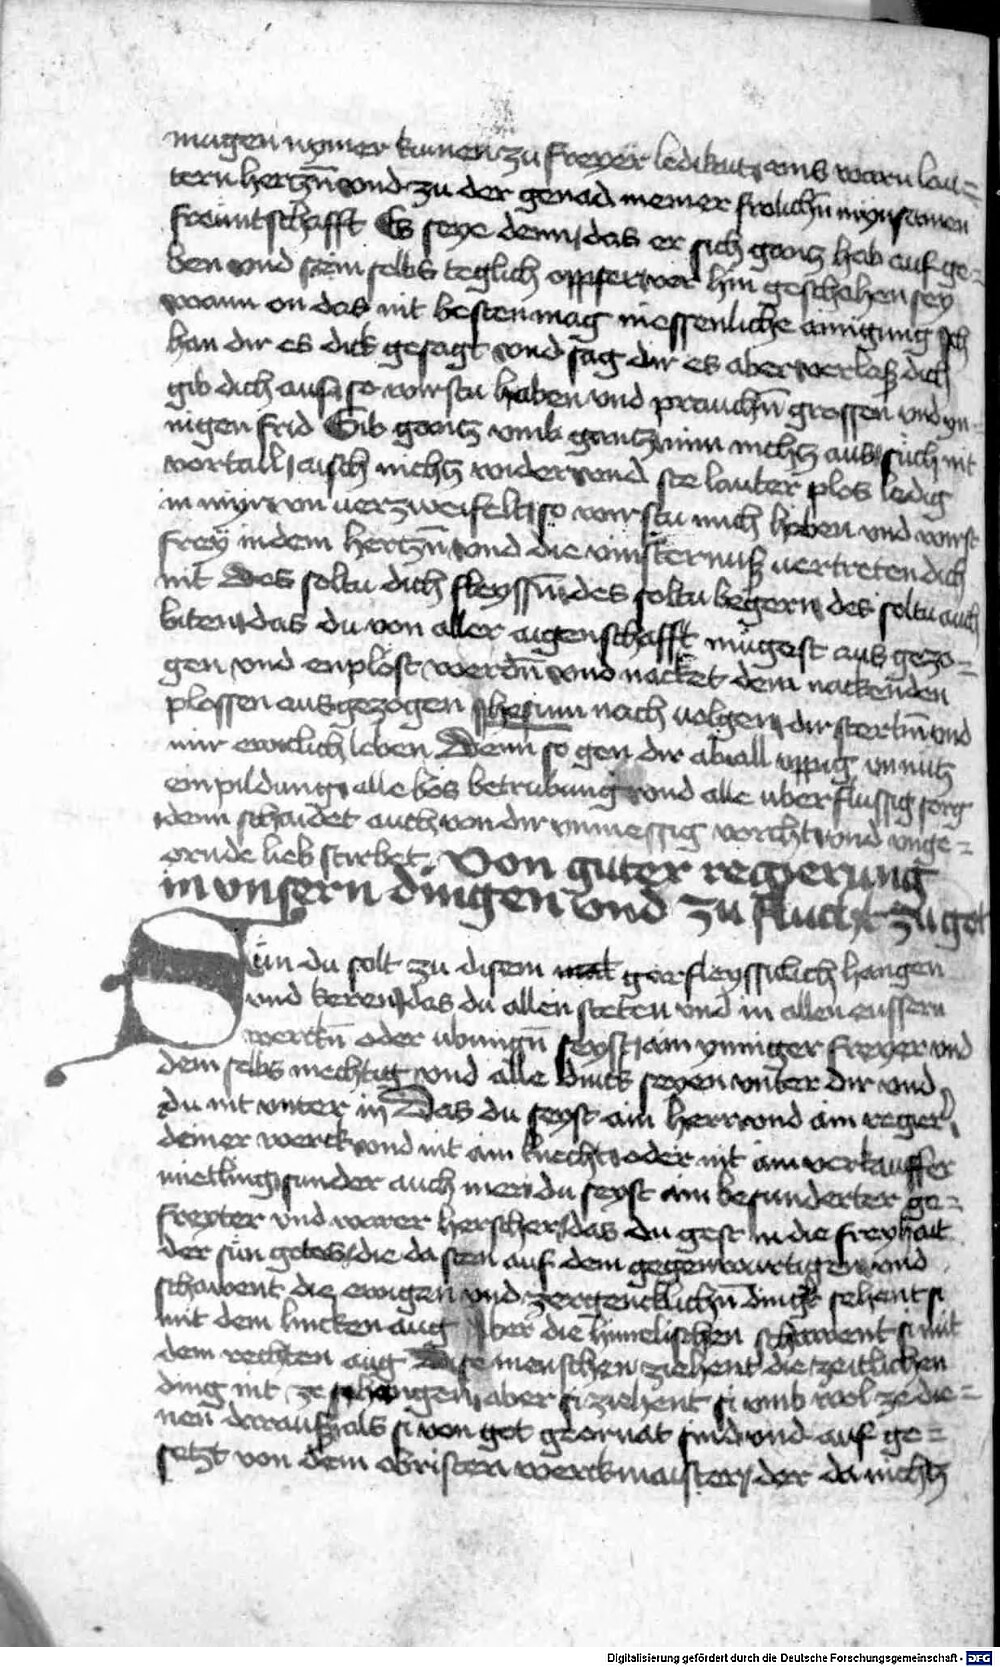 mugen nymer kumen zu freyer ledikait eins waren lau=
tern hertzn̄ vnd zu der genad meiner frolichn̄ mynsamen
freuntschafft Es seye denn das er sich gantz hab auf ge=
ben vnd sein selbs teglich oppfer vor hin geschehen sey
wann on das nit besten mag niessenliche ainigung Jch
han dir es dick gesagt vnd sag dir es aber verlaß dich
gib dich auf so wirstu haben vnd prauchn̄ grossen vnd yn=
nigen frid Gib gantz vmb gantz nim nichtz aus such nit
vortail aisch nichtz wider vnd ste lauter plos ledig
in myr vn uerzweifelt so wirstu mich haben vnd wirst
frey in dem hertzn̄ vnd die vinsternuß vertreten dich
nit Des soltu dich fleyssn̄ des soltu begern des soltu auch
biten das du von aller aigenschafft mugest aus gezo=
gen vnd enplost werdn̄ vnd nacket dem nackenden
plossen ausgezogen Jhesum nach uolgen dir sterbn̄ vnd
mir ewiclich leben Denn so gen dir ab all vppig vnnutz
einpildung alle bos betrubung vnd alle uberflussig sorg
denn schaidet auch von dir vnmessig vorcht vnd vnge=
ornde lieb stirbet Von guter regierung
in vnsern dingen vnd zu flucht zu got
Sun du solt zu disem gar fleyssiclich hangen
vnd keren das du allen steten vnd in allen eussern
werckn̄ oder ubungn̄ seyst ain ynniger freyer vnd
dein selbs mechtig vnd alle dinck seyen vnter dir vnd
du nit vnter in Das du seyst ain herr vnd ain regier
deiner werck vnd nit ain knecht oder nit ain verkauffter
mietling sunder auch mer du seyst ain besunderter ge=
freyter vnd warer herscher das du gest in die freyhait
der sun gotes die da sten auf dem gegenwurtigen vnd
schawent die ewigen vnd zergencklichn̄ ding sehent si
mit dem lincken aug Aber die himelischen schawent si mit
dem rechten aug Dise menschen ziehent die zeitlichen
ding nit ze hangen aber si ziehent si vmb wol ze die=
nen darauß als si von got geornat sind vnd auf ge=
setzt von dem obristen werckmaister der da nichtz
Digitalisierung gefördert durch die Deutsche Forschungsgemeinschaft - DFG